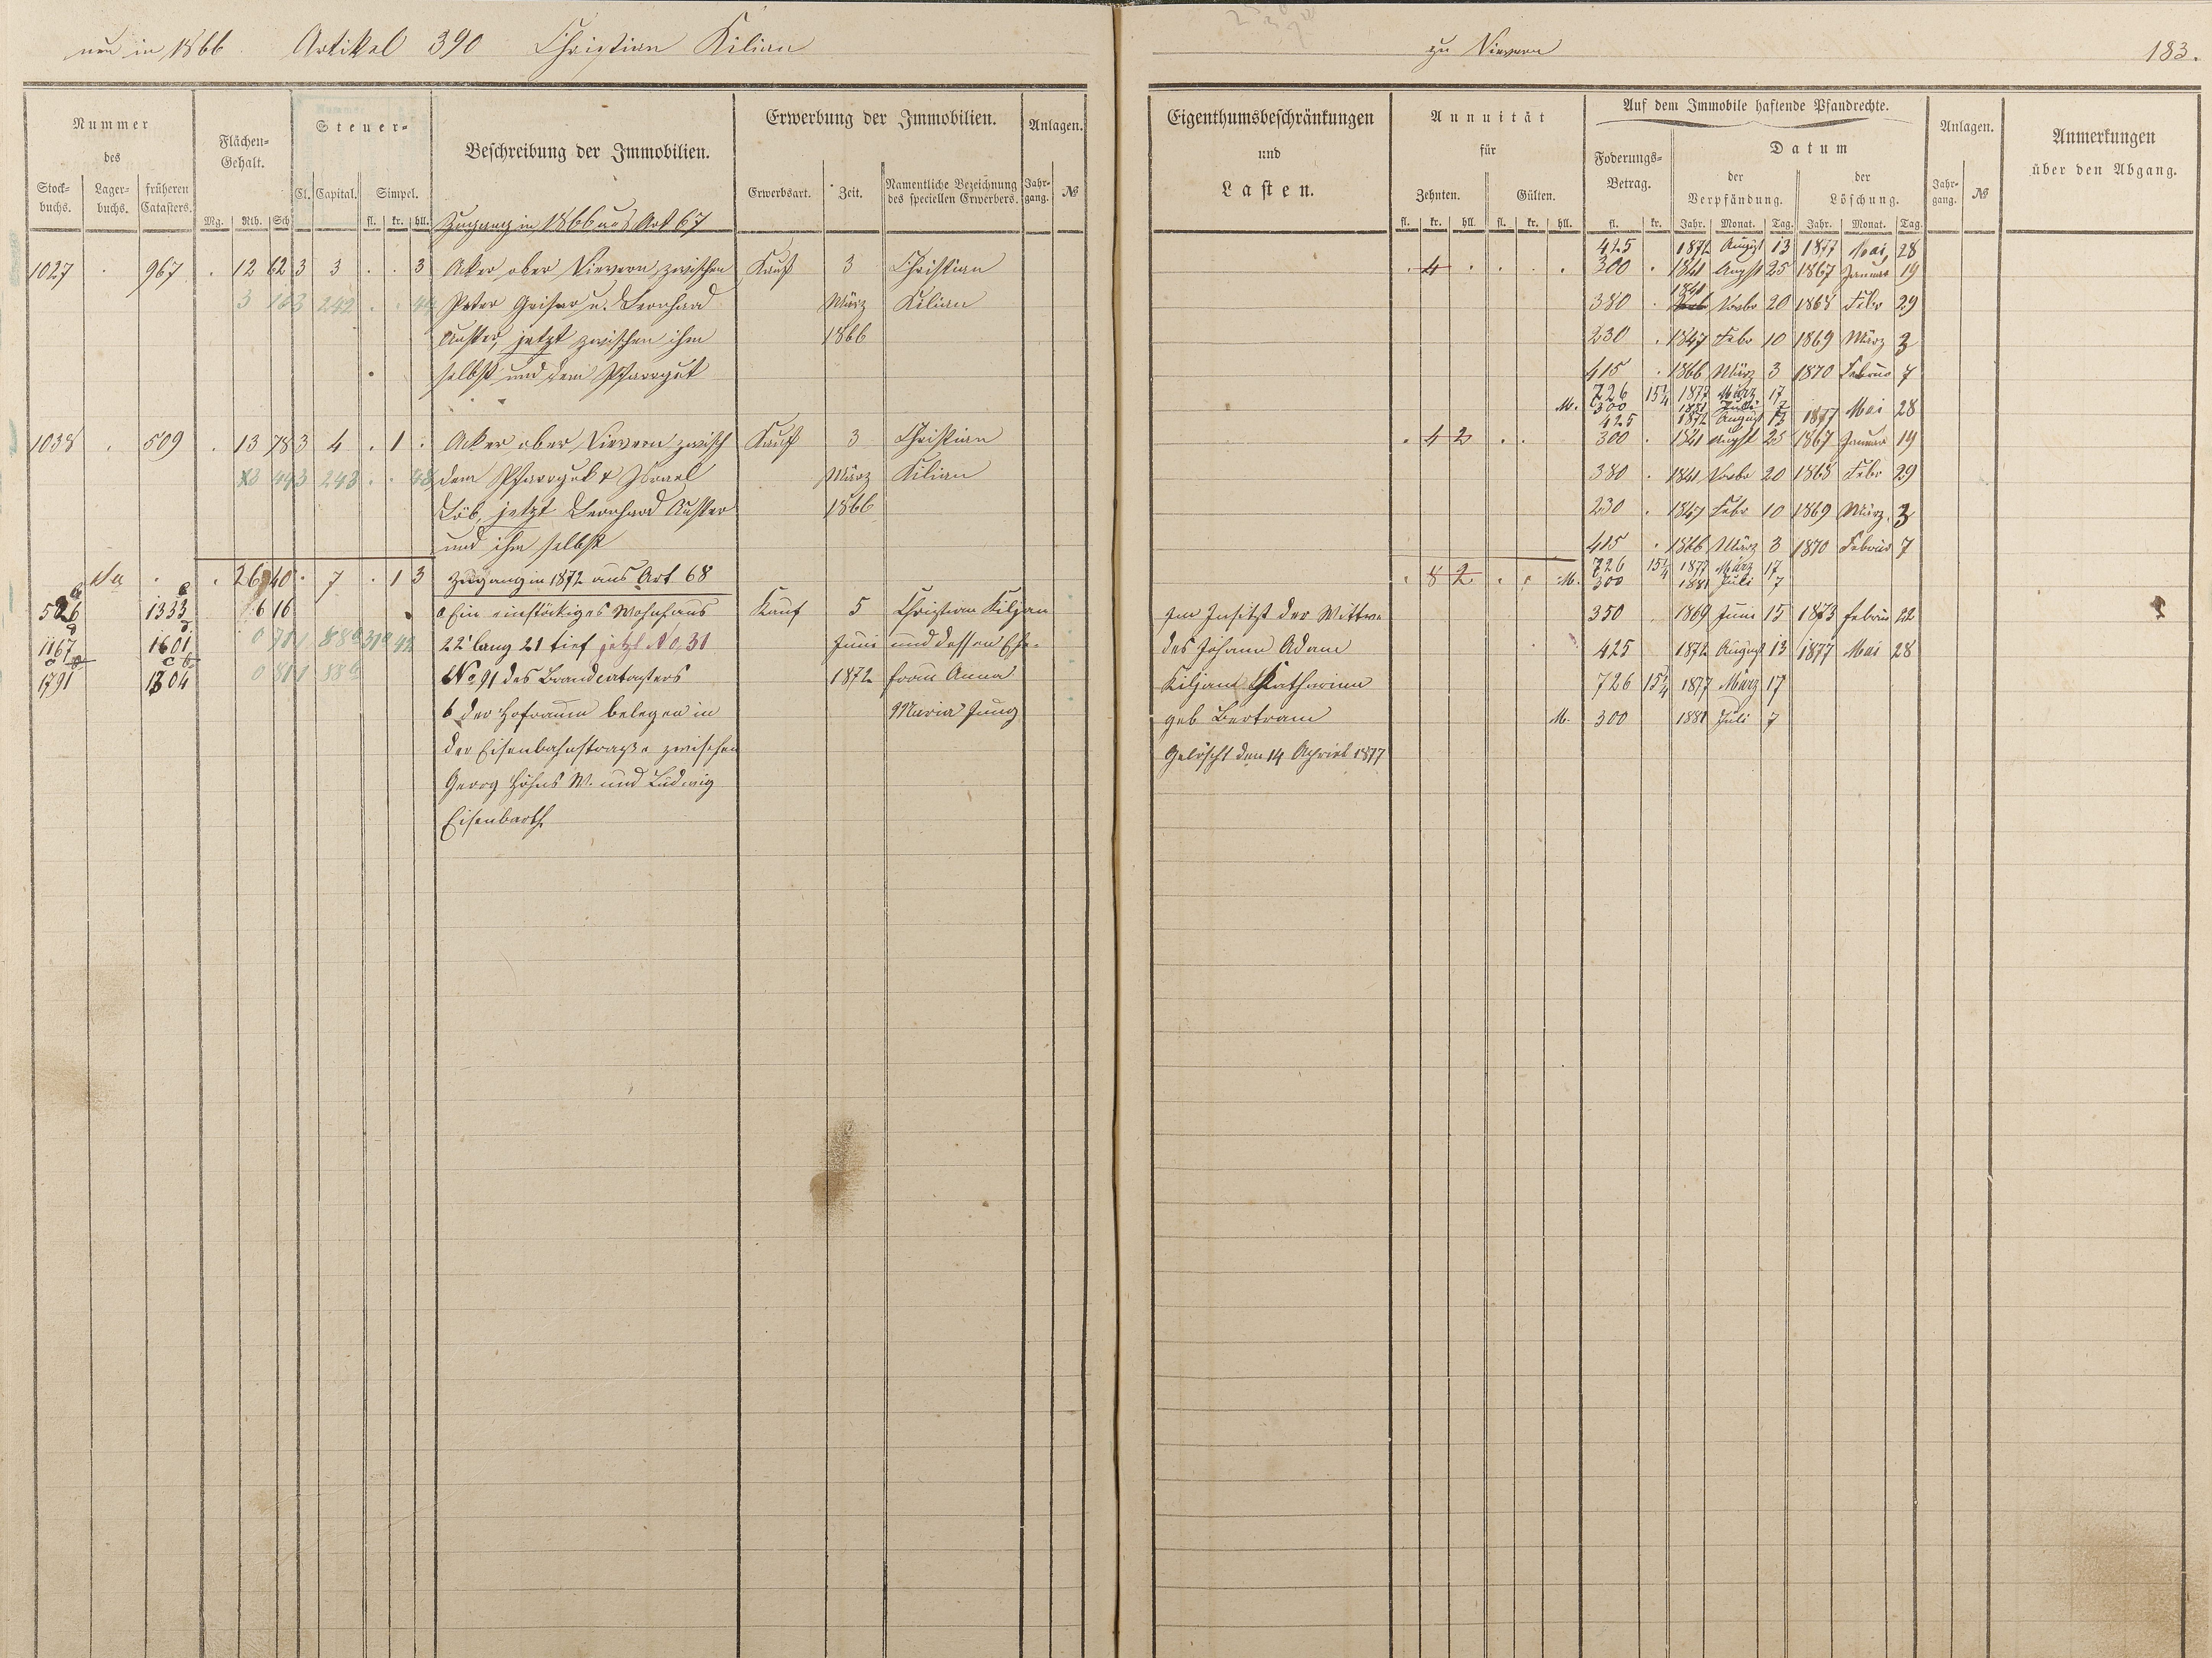 neu in 1866 Artikel 390 Christian Kilian
zu Nievern 183.
Nummer des
Stock-buchs. Lager-buchs. früheren Catasters.
Flächen-Gehalt.
Mg. Rth. Sch
Steuer-
Cl. Capital. Simpel.
fl. kr. hll.
Beschreibung der Immobilien.
Erwerbung der Immobilien.
Erwerbsart. Zeit. Namentliche Bezeichnung des speciellen Erwerbers.
Anlagen.
Jahr-gang. №
Eigenthumsbeschränkungen
und
Lasten.
Annuität
für
Zehnten. Gülten.
fl. kr. hll. fl. kr. hll.
Auf dem Immobile haftende Pfandrechte.
Foderungs-Betrag.
fl. kr.
Datum
der Verpfändung. der Löschung.
Jahr. Monat. Tag. Jahr. Monat. Tag.
Anlagen.
Jahr-gang. №
Anmerkungen
über den Abgang.
Zugang in 1866 aus Art 67
425 1872 August 13 1877 Mai 28
1027 . 967 . 12 62 3 3 . . 3 Aker ober Nievern zwischen Kauf 3 Christian . 4 . . . . 300 . 1841 Augst 25 1867 Januar 19
242 Peter Geiser u. Leonhard März Kilian 380 . 1841 Novbr 20 1868 Febr 29
Auster, jetzt zwischen ihm 1866 230 . 1847 Febr 10 1869 März 3
selbst und dem Pfarrgut 415 . 1866 März 3 1870 Februar 7
726 15¼ 1877 März 17
M. 300 1881 Juli 7
425 1872 August 13 1877 Mai 28
1038 . 509 . 13 78 3 4 . 1 . Aker ober Nievern zwisch Kauf 3 Christian . 4 2 . . 300 . 1841 Augst 25 1867 Januar 19
243 dem Pfarrgut & Israel März Kilian 380 . 1841 Novbr 20 1868 Febr 29
Löb, jetzt Leonhard Auster 1866 230 . 1847 Febr 10 1869 März. 3
und ihm selbst 415 . 1866 März 3 1870 Februar 7
Sa . . 26 40 . 7 . 1 3 Zugang in 1872 aus Art 68 . 8 2 . . M. 726 15¼ 1877 März 17
300 1881 Juli 7
526 1333 6 16 a Ein einstöckiges Wohnhaus Kauf 5 Christian Kiljan Im Insitzt der Wittwe 350 1869 Juni 15 1873 Februar 22
1167 1601 22' lang 21 tief jetzt No. 31 Juni und dessen Ehe- des Johann Adam 425 1872 August 13 1877 Mai 28
1791 1804 No 91 des Brandcatasters 1872 frau Anna Kiljan Katharina 726 15¼ 1877 März 17
b der Hofraum belegen in Maria Jung geb Bertram M. 300 1881 Juli 7
der Eisenbahnstraße zwischen Gelöscht den 14 April 1877
Georg Höhns W. und Ludwig
Eisenbarth